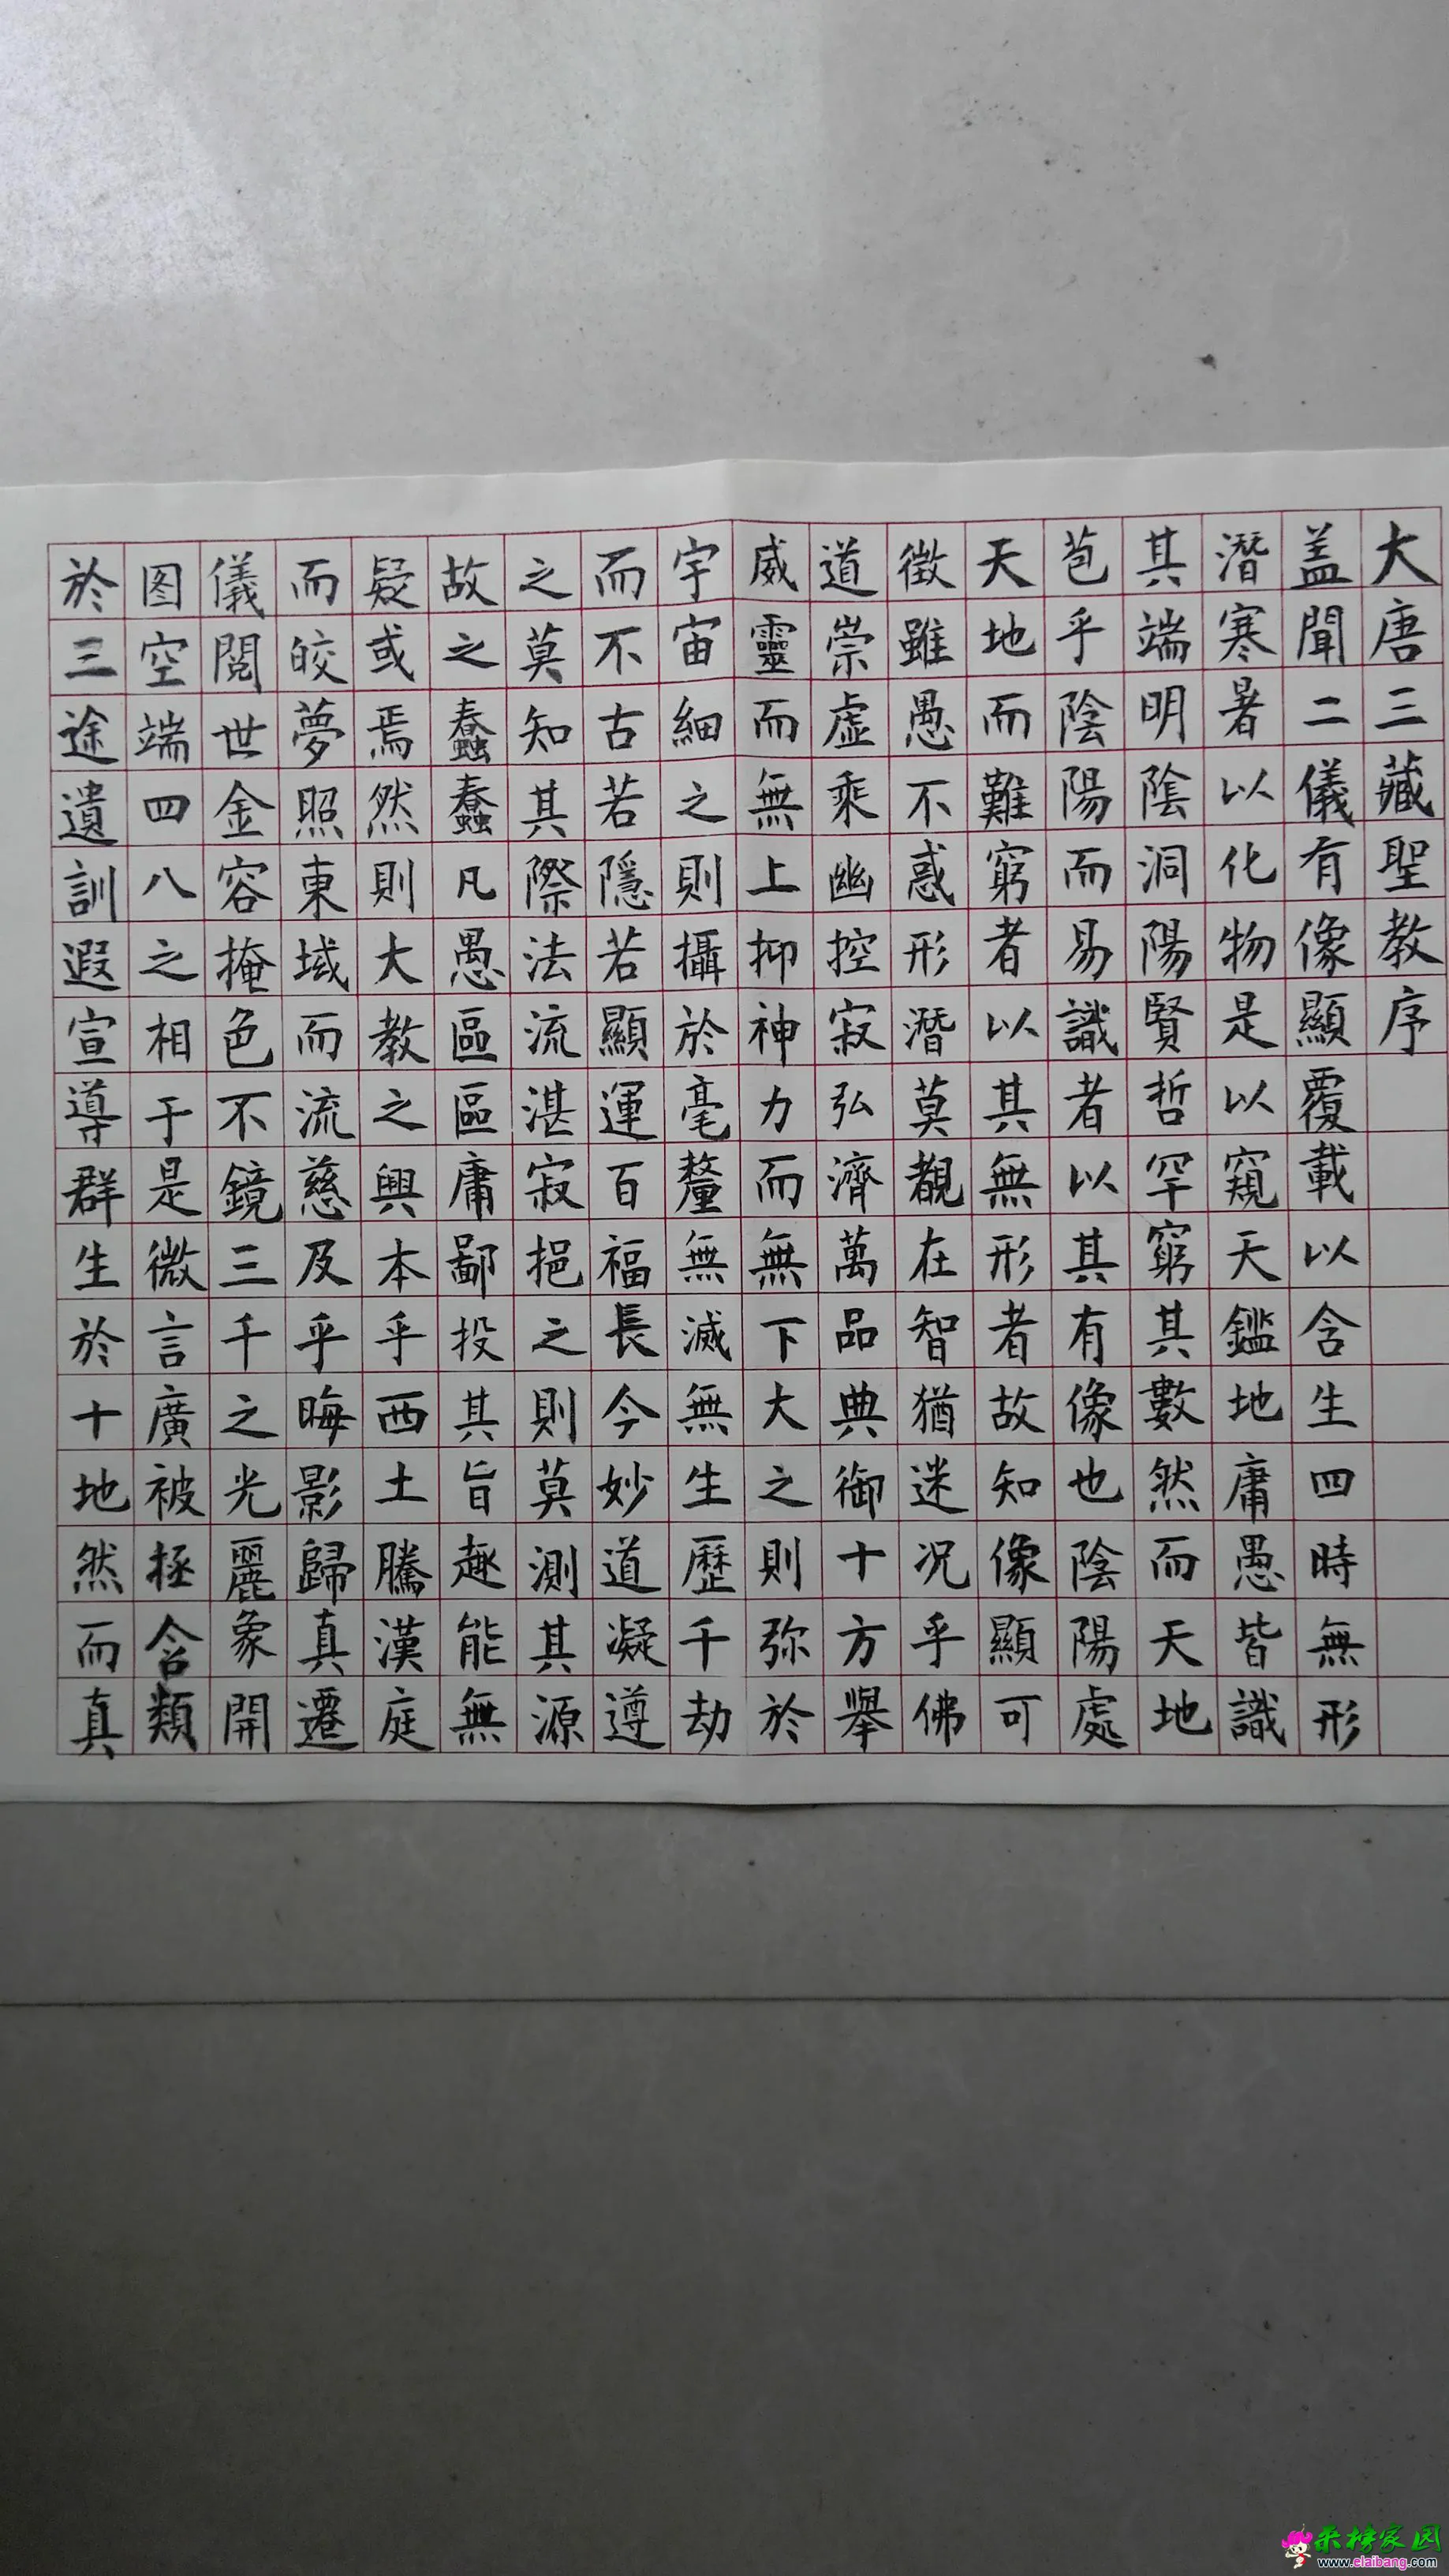 大唐三藏聖教序
盖聞二儀有像顯覆載以含生四時無形
潛寒暑以化物是以窺天鑑地庸愚皆識
其端明陰洞陽賢哲罕窮其數然而天地
苞乎陰陽而易識者以其有像也陰陽處
天地而難窮者以其無形者故知像顯可
徵雖愚不惑形潛莫覩在智猶迷况乎佛
道崇虛乘幽控寂弘濟萬品典御十方舉
威靈而無上抑神力而無下大之則弥於
宇宙細之則攝於毫釐無滅無生歷千劫
而不古若隱若顯運百福長今妙道凝遵
之莫知其際法流湛寂挹之則莫測其源
故之蠢蠢凡愚區區庸鄙投其旨趣能無
疑或焉然則大教之興本乎西土騰漢庭
而皎夢照東域而流慈及乎晦影歸真遷
儀閱世金容掩色不鏡三千之光麗象開
图空端四八之相于是微言廣被拯含類
於三途遺訓遐宣導群生於十地然而真
采榜家园
www.elaibang.com